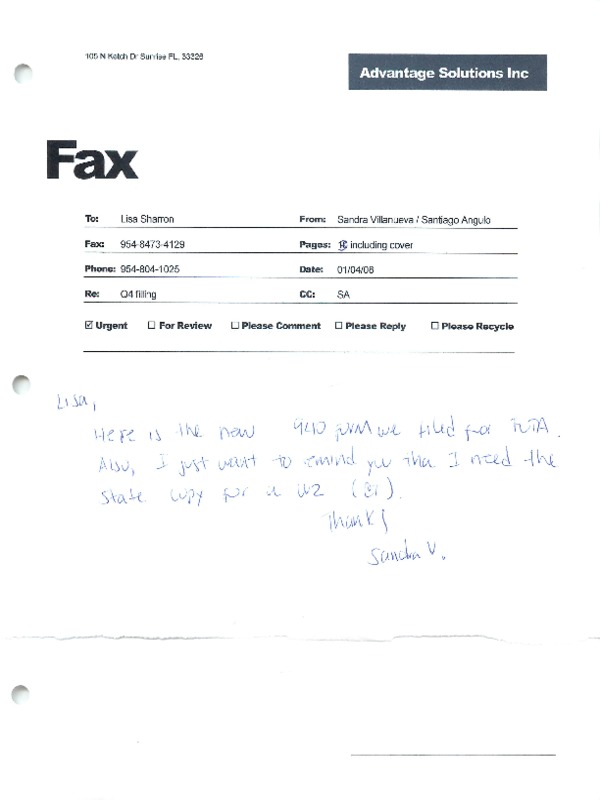 105 N Ketch Dr Sunrise FL, 33326
Advantage Solutions Inc
Fax
To: Lisa Sharron
From: Sandra Villanueva / Santiago Angulo
Fax: 954-8473-4129
Pages: including cover
Phone: 954-804-1025
Date: 01/04/08
Re: Q4 filling
CC: SA
☑ Urgent ☐ For Review ☐ Please Comment ☐ Please Reply ☐ Please Recycle
Lisa,
Here is the new 940 form we filed for FUTA.
Also, I just want to remind you tha I need the
State copy for a W2 (CT).
Thanks
Sandra V.